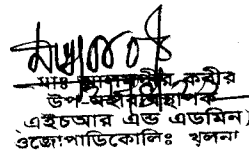 মোঃ আলমগীর কবীর
উপ-মহাব্যবস্থাপক
(এইচআর এন্ড এডমিন)
ওজোপাডিকোলিঃ খুলনা